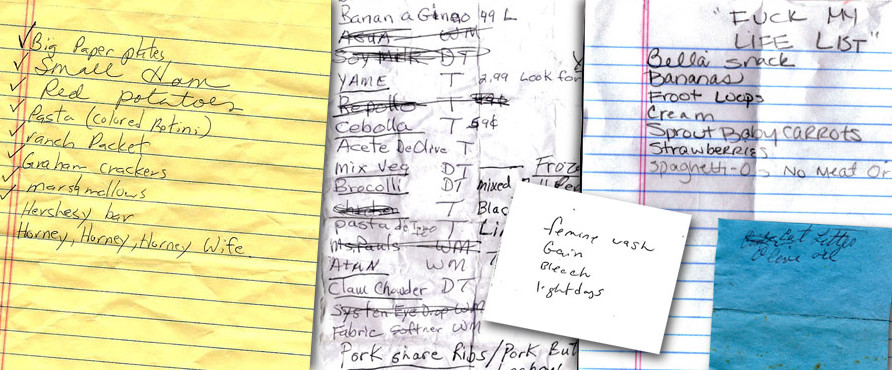 Big Paper plates
Small Ham
Red potatoes
Pasta (colored Rotini)
ranch Packet
Graham crackers
marshmellows
Hershesy bar
Horney, Horney, Horney Wife.
Banana Gingo 99 L
AGUA WM
Soy Milk DT
YAME T 2.99 Look for
Repollo T 59¢
Cebolla T 59¢
Acete DeOlive T
Mix Veg DT
Froze
Brocolli DT mixed
T Blac
pasta de T Li
Mrs. Pauls WM
Atun WM
Clam Chowder DT
System Eye Drop WM
Fabric Softner WM
Pork share Ribs/Pork But
femine wash
Gain
Bleach
lightdays
"FUCK MY
LIFE LIST"
Bella snack
Bananas
Froot Loops
Cream
Sprout Baby Carrots
Strawberries
Spaghetti-O's No Meat Or
Cat Litter
Olive oil